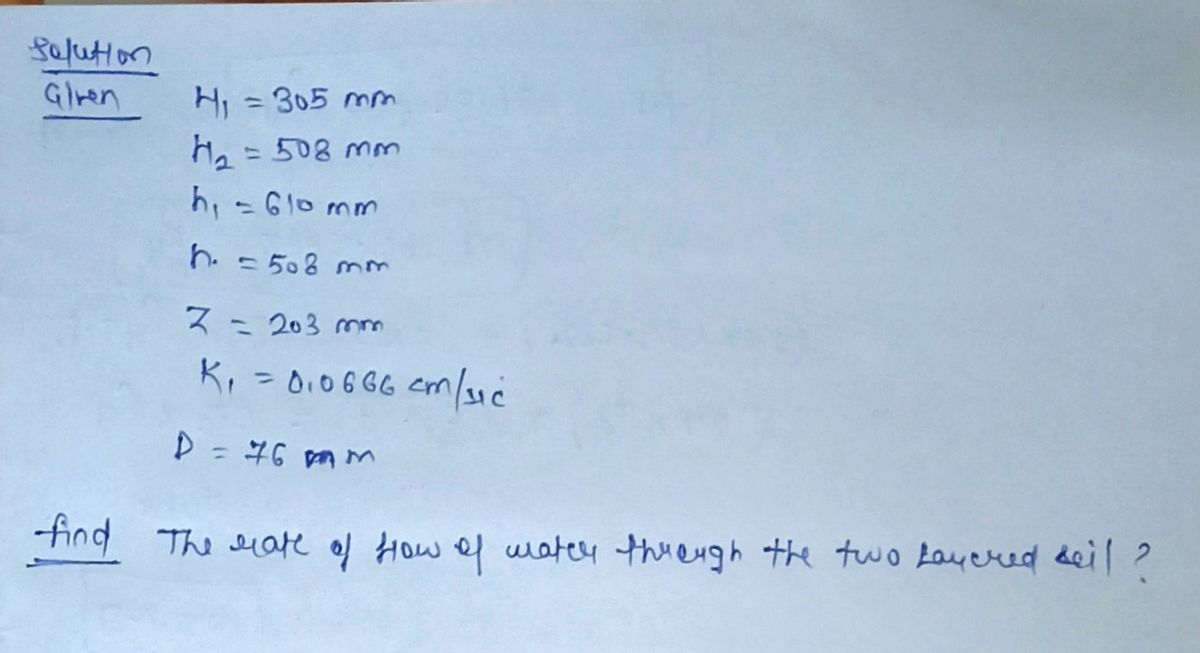 Solution
Given H₁ = 305 mm
H₂ = 508 mm
h₁ = 610 mm
h. = 508 mm
Z = 203 mm
K₁ = 0.0666 cm/sec
D = 76 mm
find The rate of flow of water through the two Layered soil ?